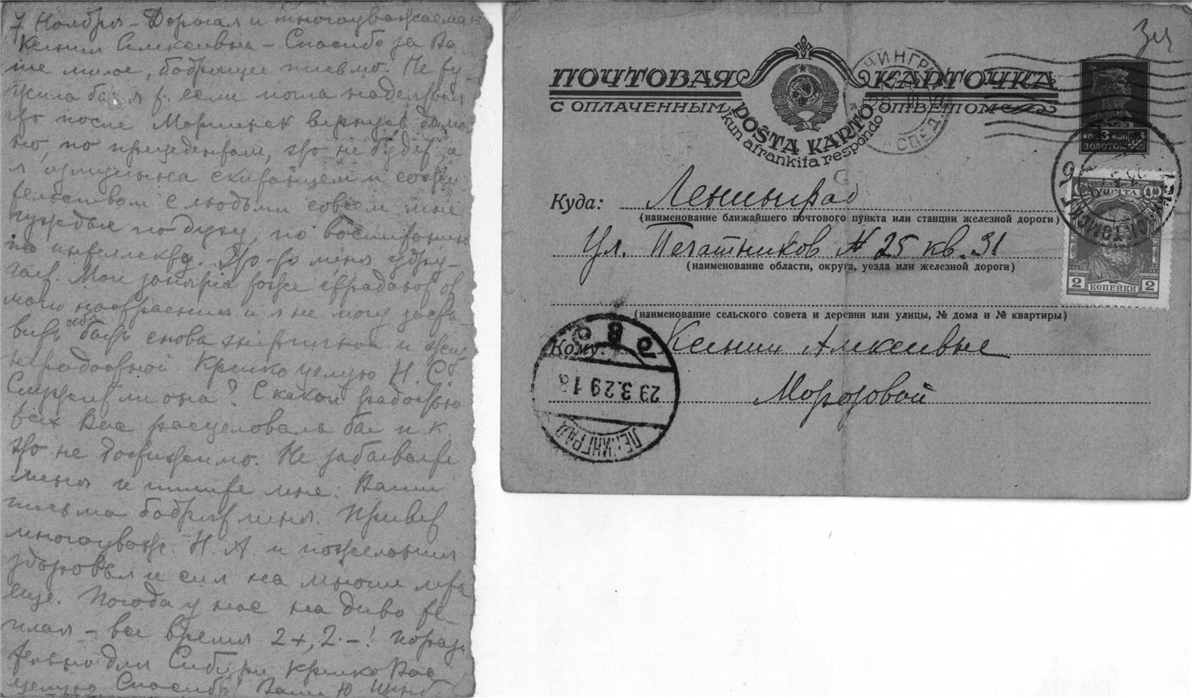 7 Ноября – Дорогая и многоуважаемая
Ксения Алексеевна – Спасибо за Ва
ше милое, бодрящее письмо. Не ту
жила бы я б. если могла надеяться
что после
но, по что не будет, а
я, скитанием и сожи
тельством с людьми совсем мне
чуждые по духу, по воспитанию
по интеллекту. Это-то меня удру-
чает. Мои занятия тоже страдают от
моего настроения и я не могу заста
вить себя быть снова энергичной и жизне
нерадостной Крепко целую Н. С.
Служит ли она? С какой радостью
всех Вас расцеловала бы и к
что не достижимо. Не забывайте
меня и пишите мне. Ваши
письма бодрят меня. Привет
многоуваж. Н. А. и пожелания
здоровья и сил на многие лета
еще. Погода у нас на диво те-
плая – все время 2+, 2-! порази
тельно для Сибири Крепко Вас
целую Спасибо! Ваша Ю
Зч
ПОЧТОВАЯ КАРТОЧКА
С ОПЛАЧЕННЫМ ОТВЕТОМ
POŜTA KARTO
kun afrankita respondo
3 КОП. ЗОЛОТОМ
ПОЧТА
2 КОПЕЙКИ 2
Куда: Ленинград
(наименование ближайшего почтового пункта или станции железной дороги)
Ул. Печатников № 25 кв. 31
(наименование области, округа, уезда или железной дороги)
(наименование сельского совета и деревни или улицы, № дома и № квартиры)
Кому: Ксении Алексеевне
Морозовой
ЛЕНИНГРАД
23.3.29 18